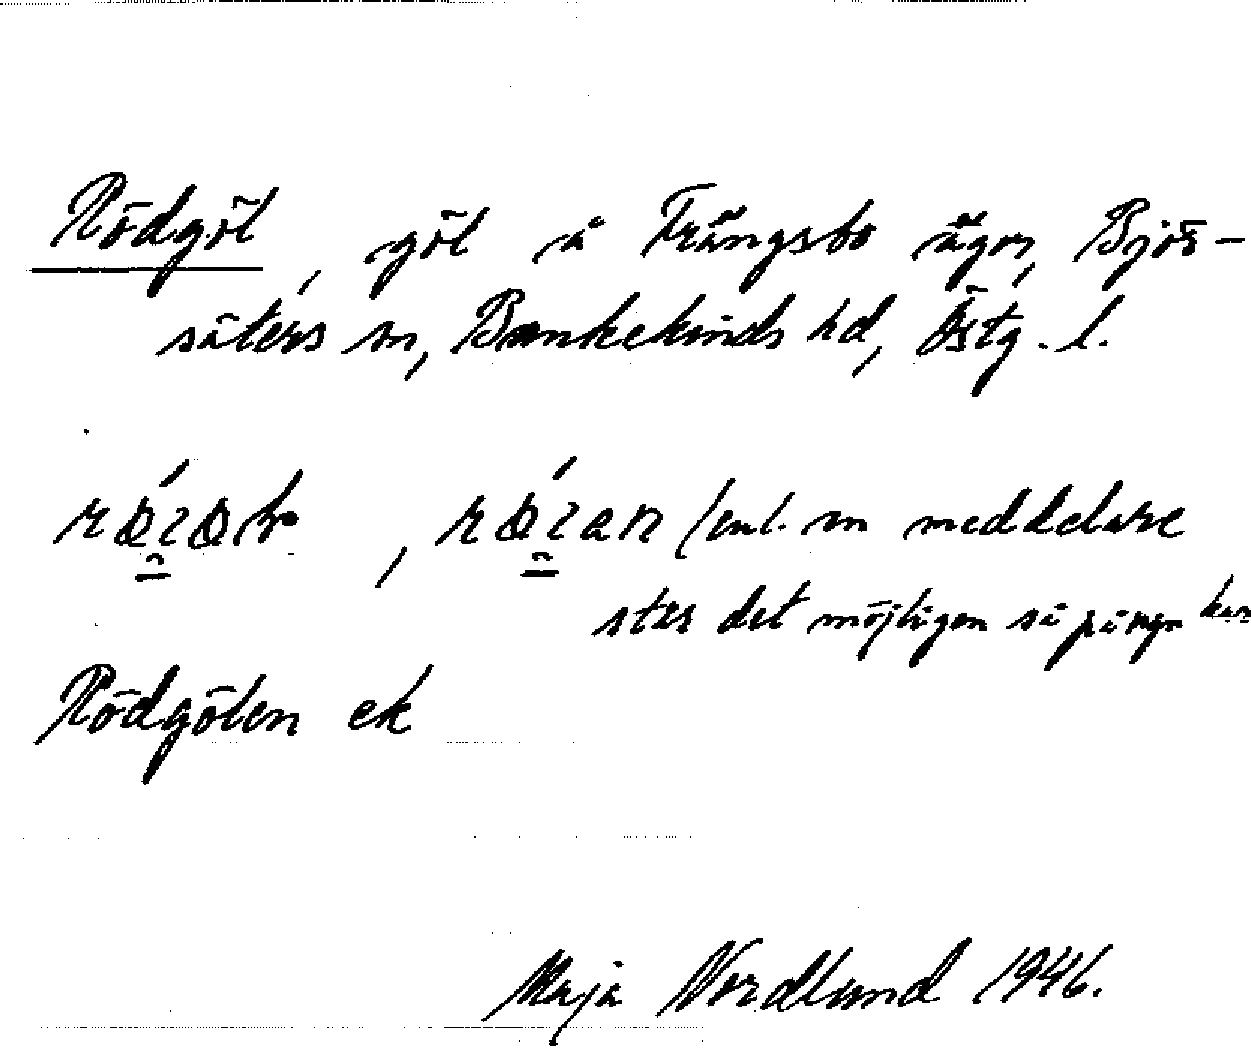 Rödgöl, göl å Trängsbo ägor, Björ-
säters sn, Bankekinds hd, Östg. l.
, (enl. en meddelare
står det möjligen så på ngn
Rödgölen ek
Maja Nordlund 1946.